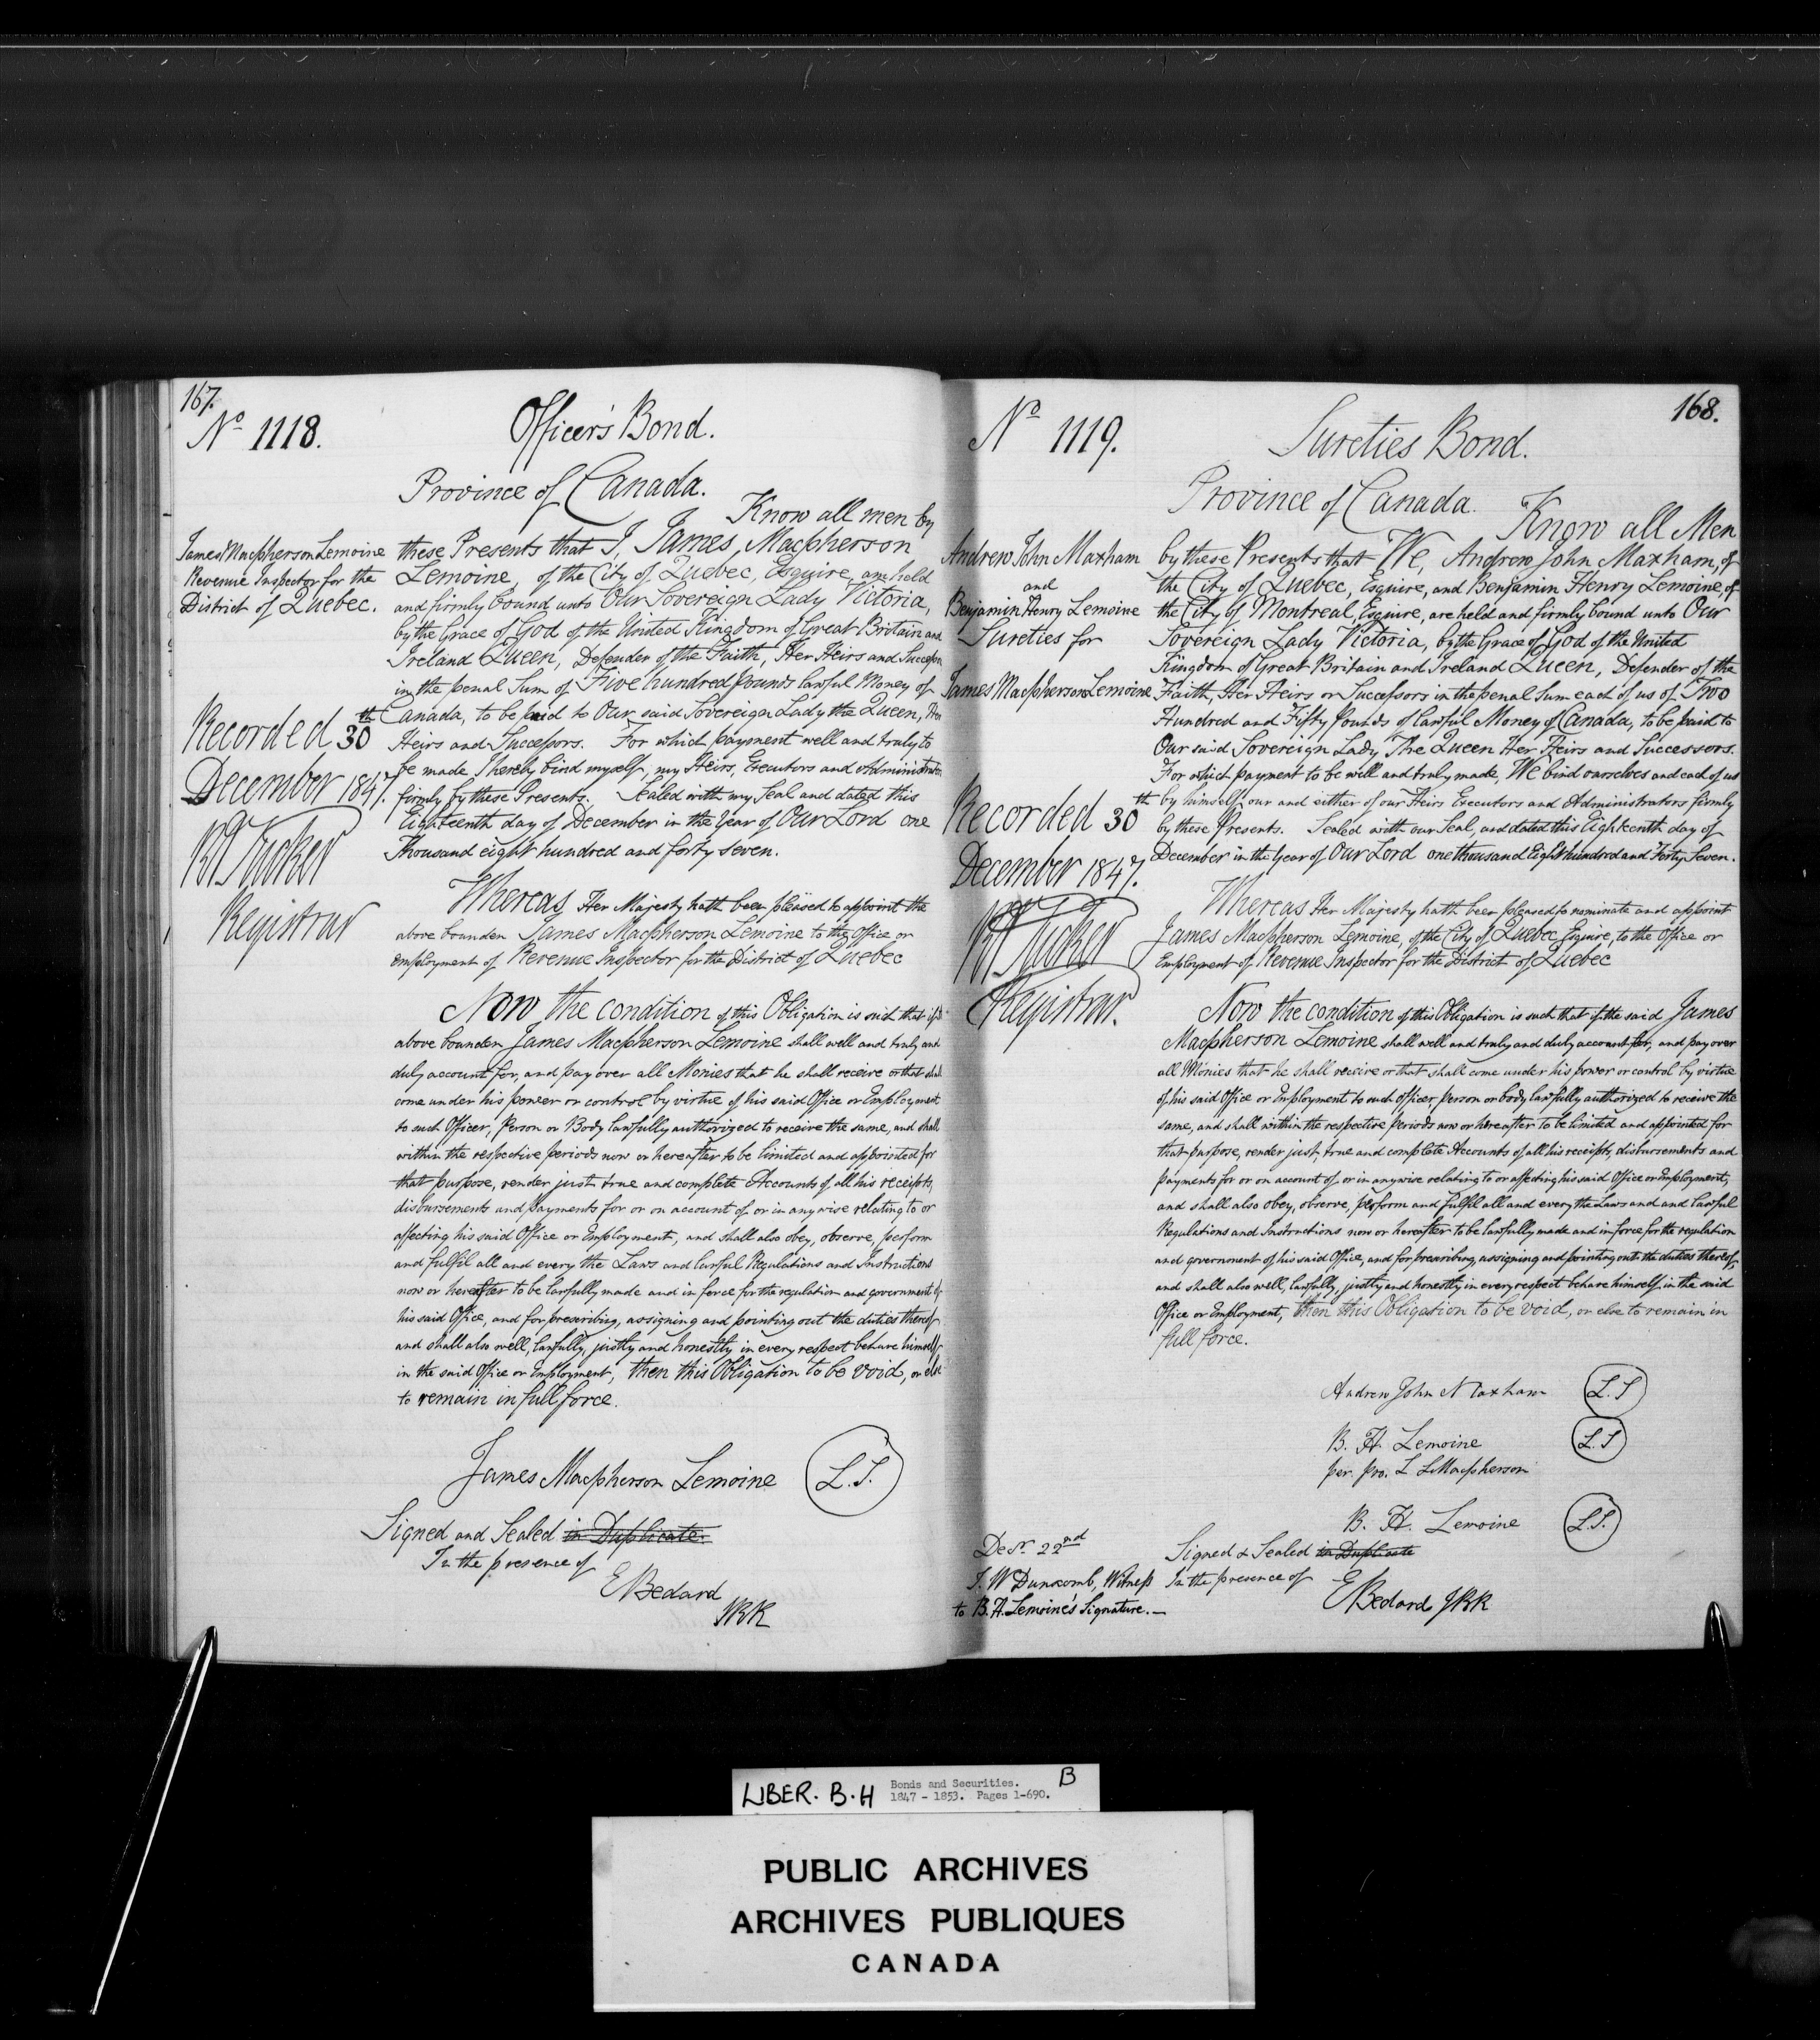 167.
No 1118.
Officer's Bond.
Province of Canada.
Know all men by
James Macpherson Lemoine
Revenue Inspector for the
District of Quebec.
these Presents that I, James, Macpherson
Lemoine, of the City of Quebec, Esquire, am held
and firmly bound unto Our Sovereign Lady Victoria,
by the Grace of God of the United Kingdom of Great Britain and
Ireland Queen, Defender of the Faith, Her Heirs and Successors
in the penal Sum of Five hundred pounds lawful Money of
Canada, to be paid to Our said Sovereign Lady the Queen, Her
Heirs and Successors. For which payment well and truly to
be made I hereby bind myself, my Heirs, Executors and Administrators
firmly by these Presents. Sealed with my Seal and dated this
Eighteenth day of December in the Year of Our Lord one
Thousand eight hundred and forty seven.
Recorded 30th
December 1847.
R A Tucker
Registrar
Whereas Her Majesty hath been pleased to appoint the
above bounden James Macpherson Lemoine to the Office or
employment of Revenue Inspector for the District of Quebec
Now the condition of this Obligation is such that if the
above bounden James Macpherson Lemoine shall well and truly and
duly account for, and pay over all Monies that he shall receive or that shall
come under his power or control by virtue of his said Office or Employment
to such Officer, Person or Body lawfully authorized to receive the same, and shall
within the respective periods now or hereafter to be limited and appointed for
that purpose, render just true and complete Accounts of all his receipts,
disbursements and payments for or on account of or in any wise relating to or
affecting his said Office or Employment, and shall also obey, observe, perform
and fulfil all and every the Laws and lawful Regulations and Instructions
now or hereafter to be lawfully made and in force for the regulation and government of
his said Office, and for prescribing, assigning and pointing out the duties thereof
and shall also well, lawfully, justly and honestly in every respect behave himself
in the said Office or Employment, then this Obligation to be void, or else
to remain in full force.
James Macpherson Lemoine L.S.
Signed and Sealed in Duplicate
In the presence of
E Bedard
JBR
168.
No 1119.
Sureties Bond.
Province of Canada.
Know all Men
Andrew John Maxham
and
Benjamin Henry Lemoine
Sureties for
James Macpherson Lemoine
by these Presents that We, Andrew John Maxham, of
the City of Quebec, Esquire, and Benjamin Henry Lemoine, of
the City of Montreal, Esquire, are held and firmly bound unto Our
Sovereign Lady Victoria, by the Grace of God of the United
Kingdom of Great Britain and Ireland Queen, Defender of the
Faith, Her Heirs or Successors in the penal Sum each of us of Two
Hundred and Fifty Pounds of lawful Money of Canada, to be paid to
Our said Sovereign Lady The Queen Her Heirs and Successors.
For which payment to be well and truly made, We bind ourselves and each of us
by himself our and either of our Heirs Executors and Administrators firmly
by these Presents. Sealed with our Seal, and dated this Eighteenth day of
December in the Year of Our Lord one thousand Eight hundred and Forty Seven.
Recorded 30th
December 1847.
R A Tucker
Registrar.
Whereas Her Majesty hath been pleased to nominate and appoint
James Macpherson Lemoine, of the City of Quebec Esquire, to the Office or
Employment of Revenue Inspector for the District of Quebec
Now the condition of this Obligation is such that if the said James
Macpherson Lemoine shall well and truly and duly account for, and pay over
all Monies that he shall receive or that shall come under his power or control by virtue
of his said Office or Employment to such Officer person or body lawfully authorized to receive the
same, and shall within the respective periods now or hereafter to be limited and appointed for
that purpose, render just, true and complete Accounts of all his receipts, disbursements and
payments for or on account of or in anywise relating to or affecting his said Office or Employment,
and shall also obey, observe, perform and fulfil all and every the Laws and and lawful
Regulations and Instructions now or hereafter to be lawfully made and in force for the regulation
and government of his said Office, and for prescribing, assigning and pointing out the duties thereof,
and shall also well, lawfully, justly and honestly in every respect behave himself in the said
Office or Employment, then this Obligation to be void, or else to remain in
full force.
Andrew John Maxham L.S
B. H. Lemoine L.S
per. pro. L Macpherson
B. H. Lemoine L.S.
Decr 22nd
J. W Dunscomb, Witness
to B. H. Lemoine's Signature.—
Signed & Sealed in Duplicate
In the presence of
E Bedard JBR
LIBER. B.H
Bonds and Securities. B
1847 - 1853. Pages 1-690.
PUBLIC ARCHIVES
ARCHIVES PUBLIQUES
CANADA